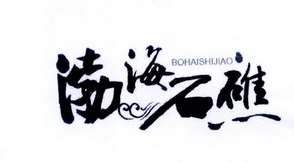 渤海石礁
BOHAISHIJIAO